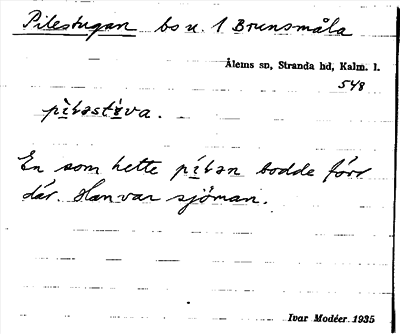 Pilestugan bs u. 1 Brunsmåla
Ålems sn, Stranda hd, Kalm. l.
548
En som hette pílən bodde förr
där. Han var sjöman.
Ivar Modéer 1935